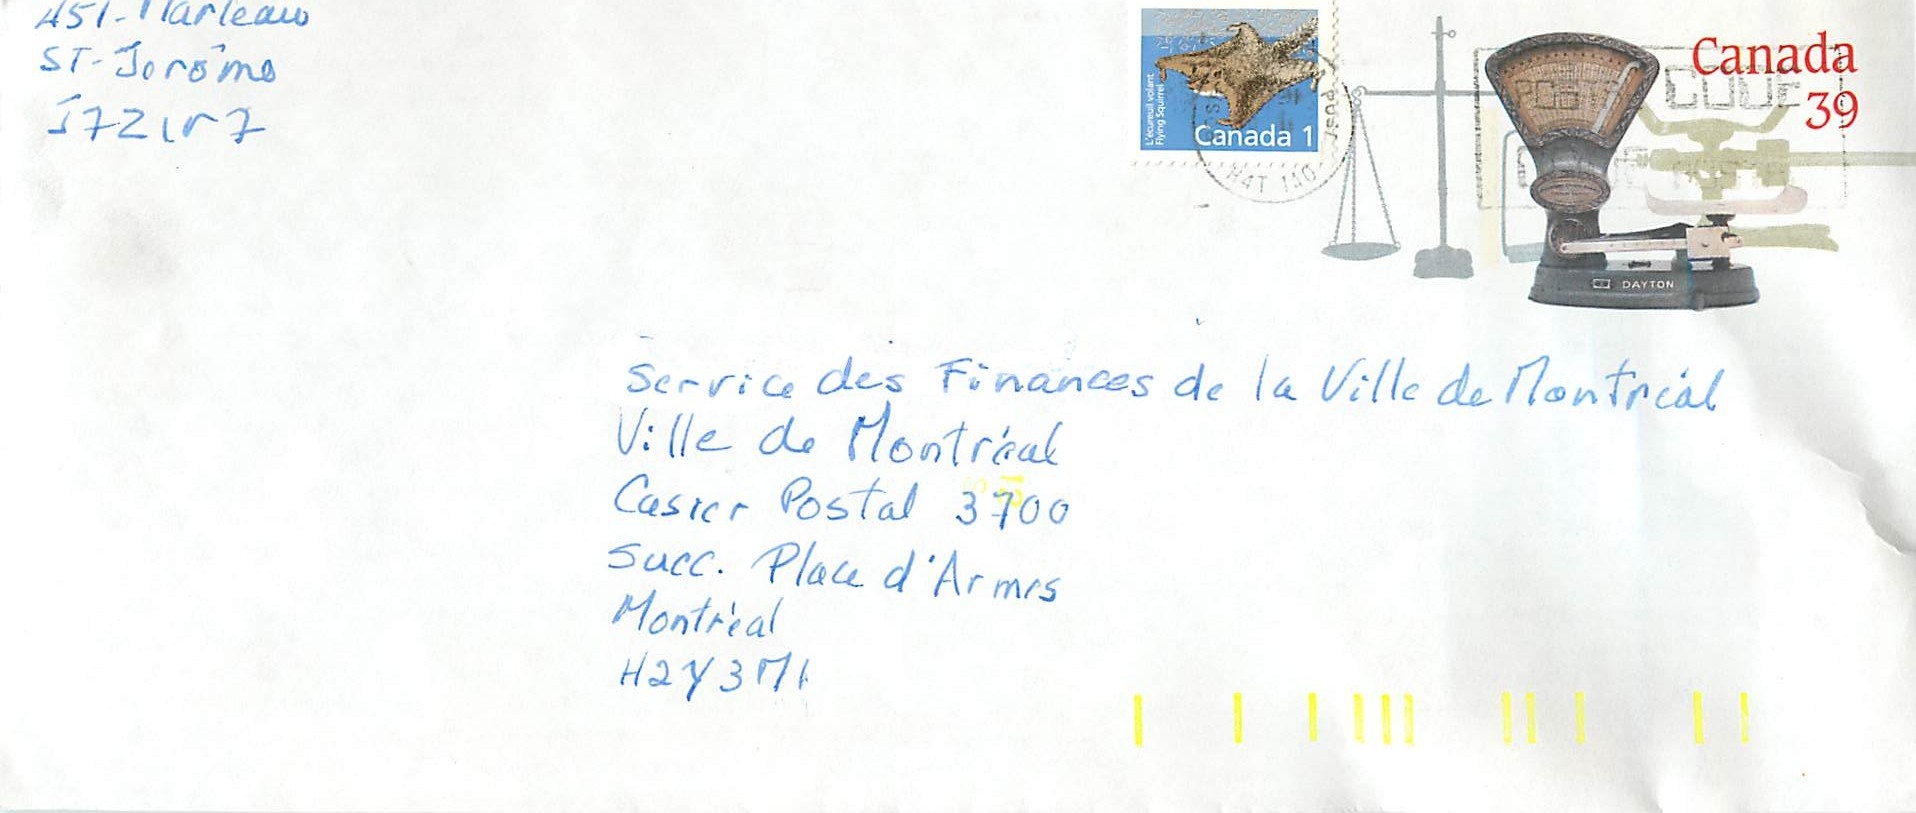 451-Marleau
ST-Jérôme
J7Z
L'écureuil volant
Flying Squirrel
Canada 1
H4T 1A0
Canada
39
DAYTON
Service des Finances de la Ville de Montréal
Ville de Montréal
Casier Postal 3700
Succ. Place d'Armes
Montréal
H2Y 3M1